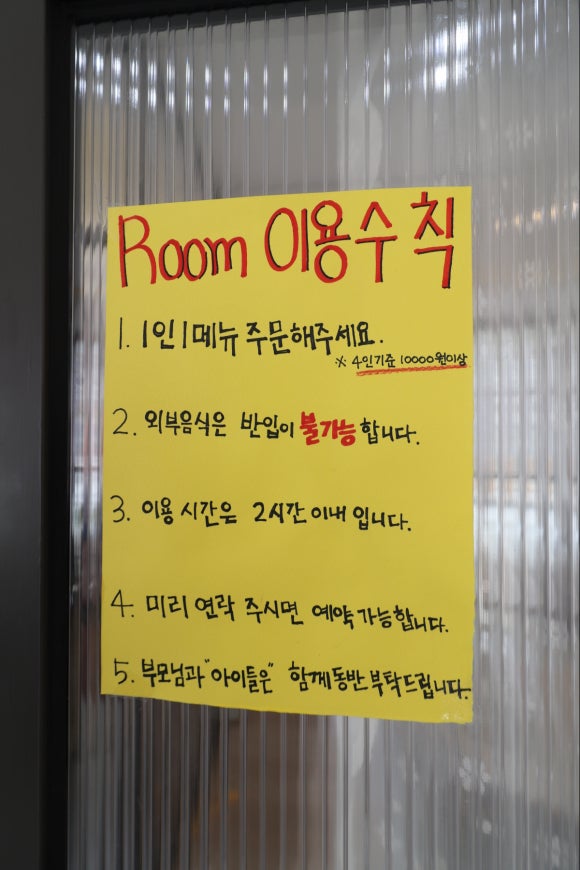 Room 이용수칙
1. 1인 1메뉴 주문해주세요.
※ 4인기준 10000원이상
2. 외부음식은 반입이 불가능합니다.
3. 이용 시간은 2시간 이내 입니다.
4. 미리 연락 주시면 예약가능합니다.
5. 부모님과 "아이들은" 함께동반 부탁드립니다.